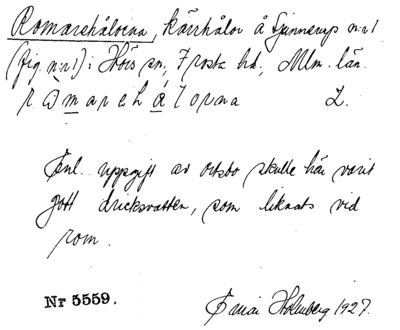 Romarehålorna, kärrhålor å Sjunnerup n:r 1
(fig. n:r 1) i Hörs sn, Frosta hd, Mlm. län.
r ω m a r e h å l o r n a L.
Enl. uppgift av ortsbo skulle här varit
gott dricksvatten, som liknats vid
rom.
Nr 5559. Holmberg 1927.